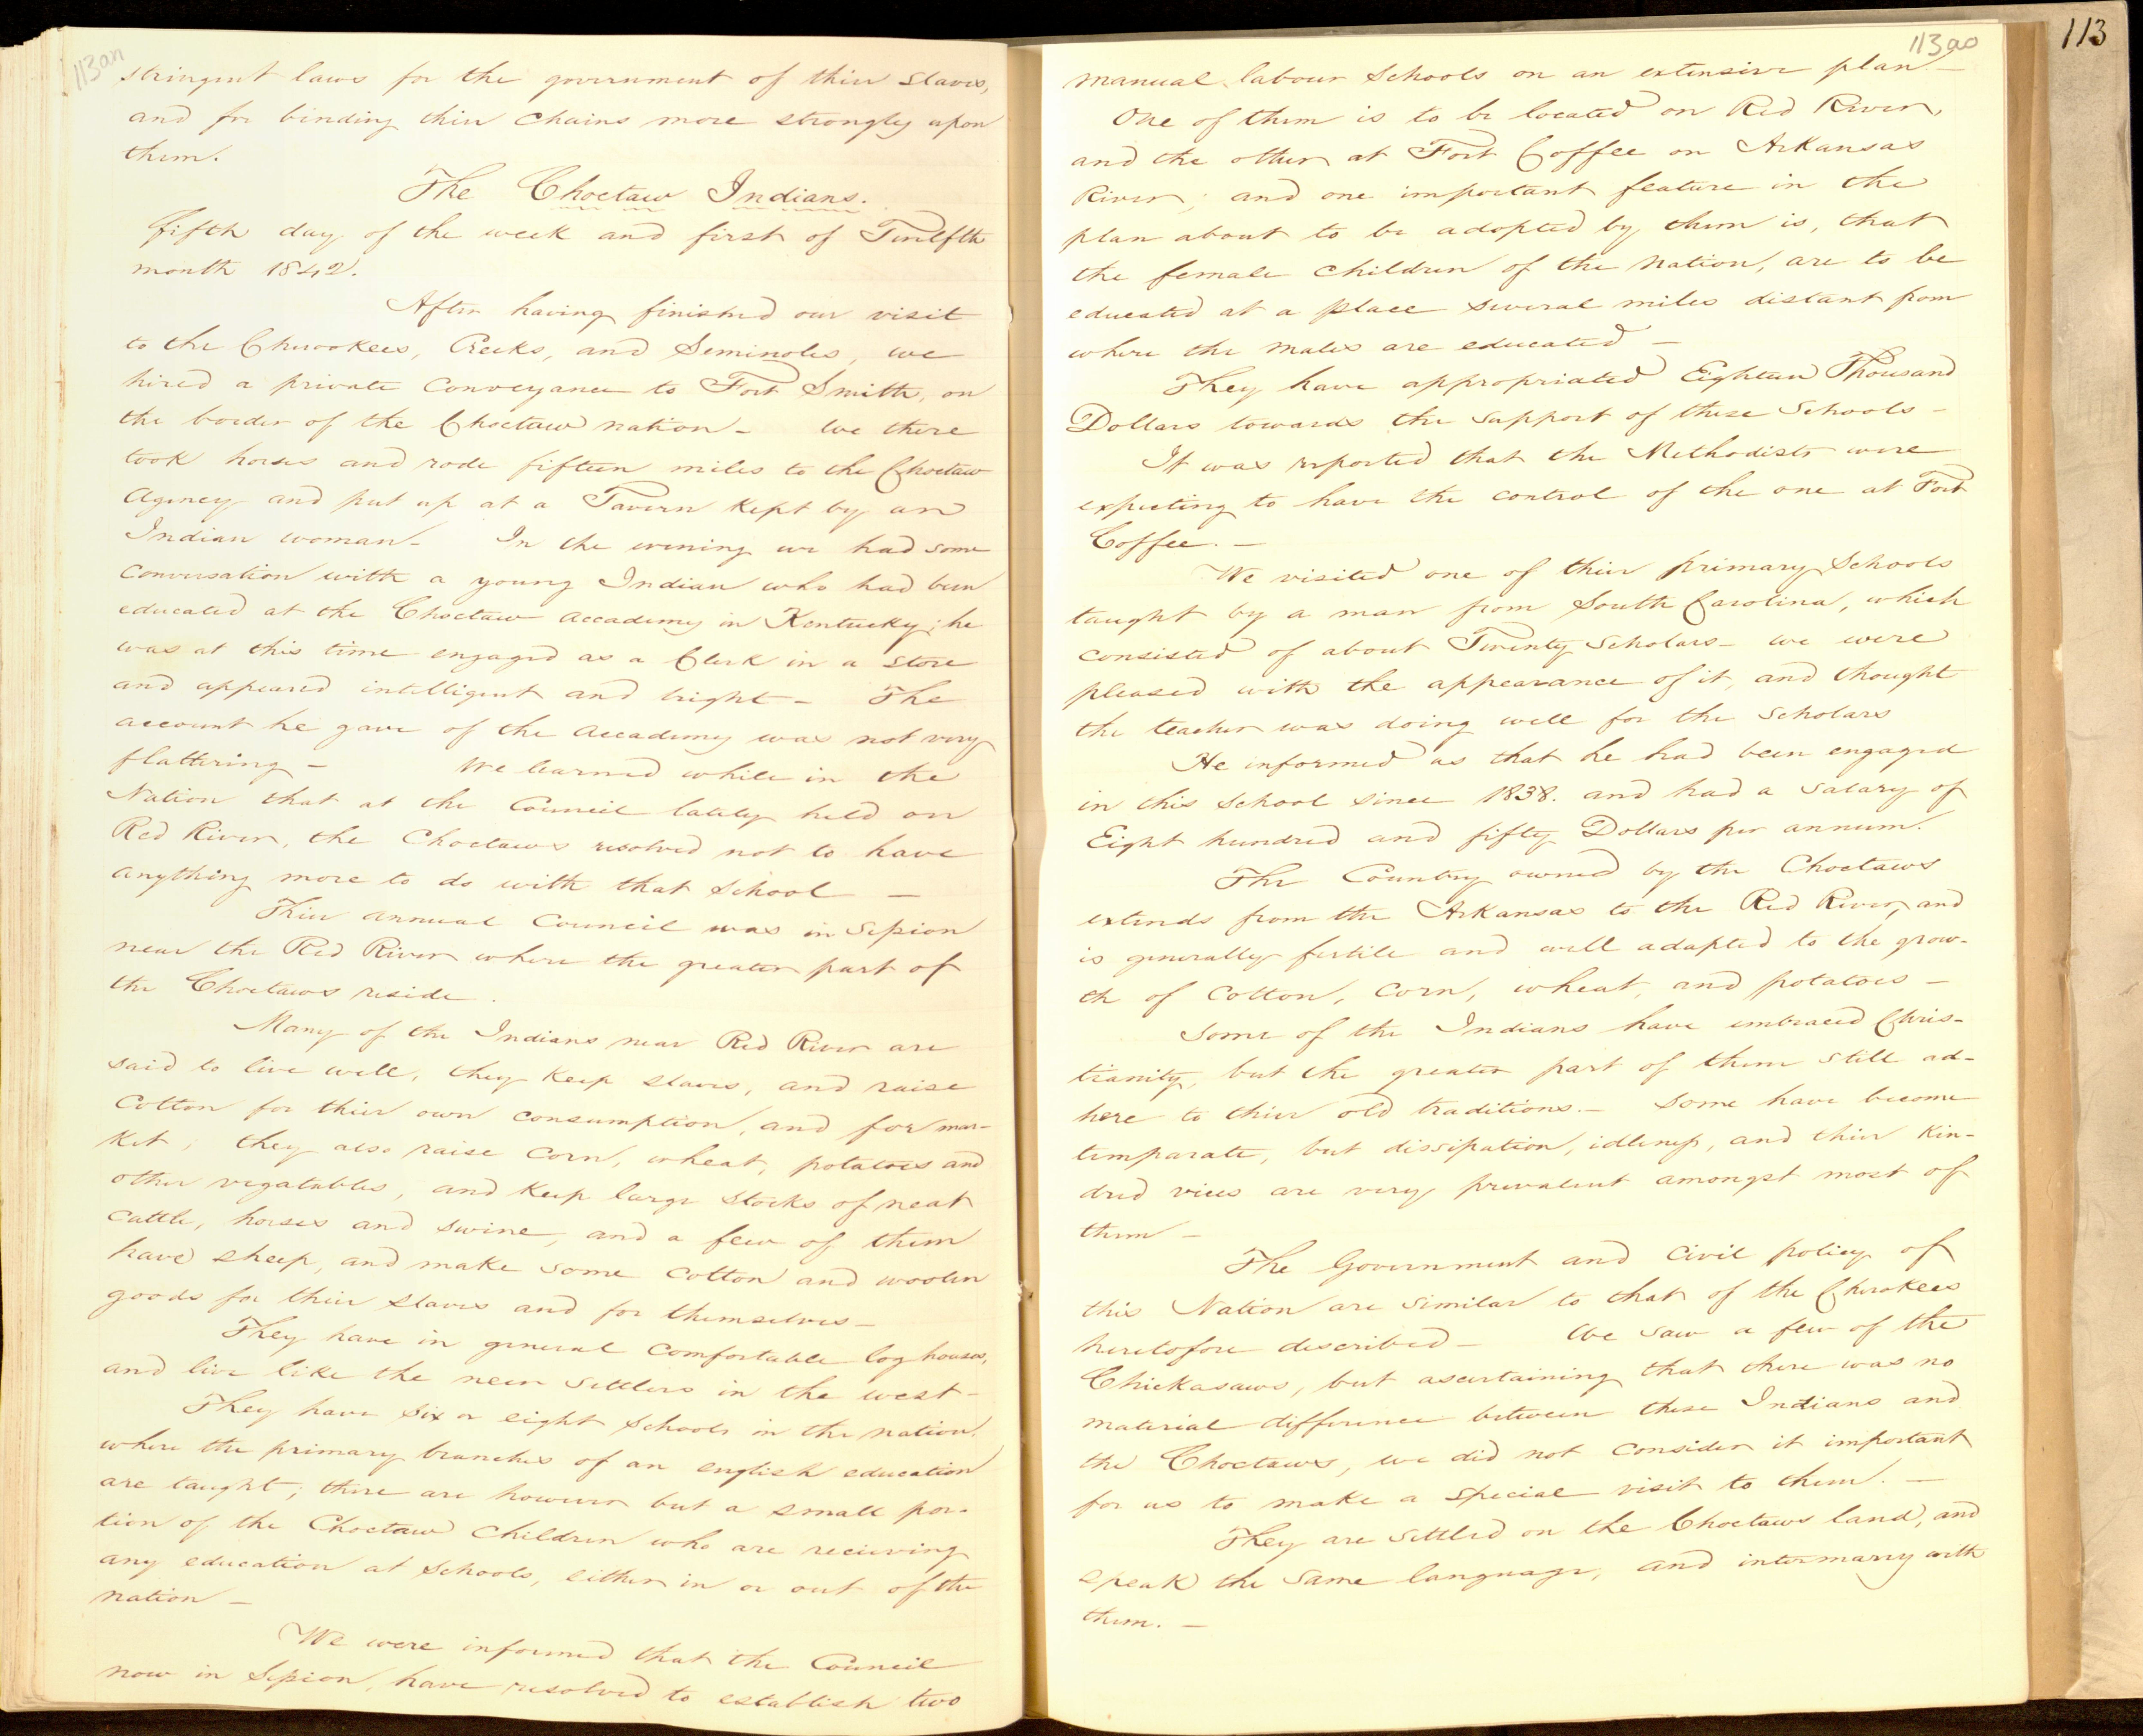 113an
stringent laws for the government of thier slaves,
and for binding thier chains more strongly upon
them.
The Choctaw Indians.
fifth day of the week and first of Twelfth
month 1842.
After having finished our visit
to the Cherokees, Creeks, and Seminoles, we
hired a private conveyance to Fort Smith, on
the border of the Choctaw nation - We there
took horses and rode fifteen miles to the Choctaw
Agency and put up at a Tavern kept by an
Indian woman - In the evening we had some
conversation with a young Indian who had been
educated at the Choctaw accademy in Kentucky; he
was at this time engaged as a Clerk in a store
and appeared intelligent and bright - The
account he gave of the accademy was not very
flattering - We learned while in the
Nation that at the Council lately held on
Red River, the Choctaws resolved not to have
anything more to do with that School -
Thier annual Council was in Session
near the Red River where the greater part of
the Choctaws reside.
Many of the Indians near Red River are
said to live well, they keep slaves, and raise
cotton for thier own consumption, and for mar-
ket; they also raise corn, wheat, potatoes and
other vegatables, and keep large stocks of neat
cattle, horses and swine, and a few of them
have sheep, and make some cotton and woolen
goods for thier slaves and for themselves -
They have in general comfortable log houses,
and live like the new settlers in the west -
They have six or eight schools in the nation,
where the primary branches of an english education
are taught; there are however but a small por-
tion of the Choctaw children who are recieving
any education at Schools, either in or out of the
nation -
We were informed that the Council
now in Session, have resolved to establish two
113ao
113
manual labour Schools on an extensive plan -
One of them is to be located on Red River,
and the other at Fort Coffee on Arkansas
River; and one important feature in the
plan about to be adopted by them is, that
the female children of the nation, are to be
educated at a place several miles distant from
where the males are educated -
They have appropriated Eighteen Thousand
Dollars towards the support of these Schools -
It was reported that the Methodists were
expecting to have the control of the one at Fort
Coffee. -
We visited one of thier primary Schools
taught by a man from South Carolina, which
consisted of about Twenty Scholars - we were
pleased with the appearance of it, and thought
the teacher was doing well for the Scholars
He informed us that he had been engaged
in this School since 1838. and had a salary of
Eight hundred and fifty Dollars per annum.
The Country owned by the Choctaws
extends from the Arkansas to the Red River, and
is generally fertile and well adapted to the grow-
th of cotton, corn, wheat, and potatoes -
Some of the Indians have embraced Chris-
tianity, but the greater part of them still ad-
here to thier old traditions. - Some have become
temparate, but dissipation, idleness, and thier kin-
dred vices are very prevalent amongst most of
them -
The Government and civil policy of
this Nation are similar to that of the Cherokees
heretofore described - We saw a few of the
Chickasaws, but ascertaining that there was no
material difference between these Indians and
the Choctaws, we did not consider it important
for us to make a special visit to them. -
They are settled on the Choctaws land, and
speak the same language, and intermarry with
them. -